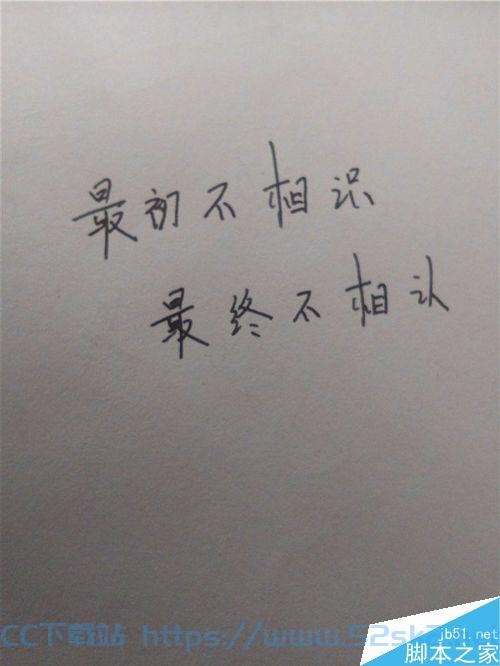 最初不相识
最终不相认
jb51.net
脚本之家
CC下载站 https://www.52sk